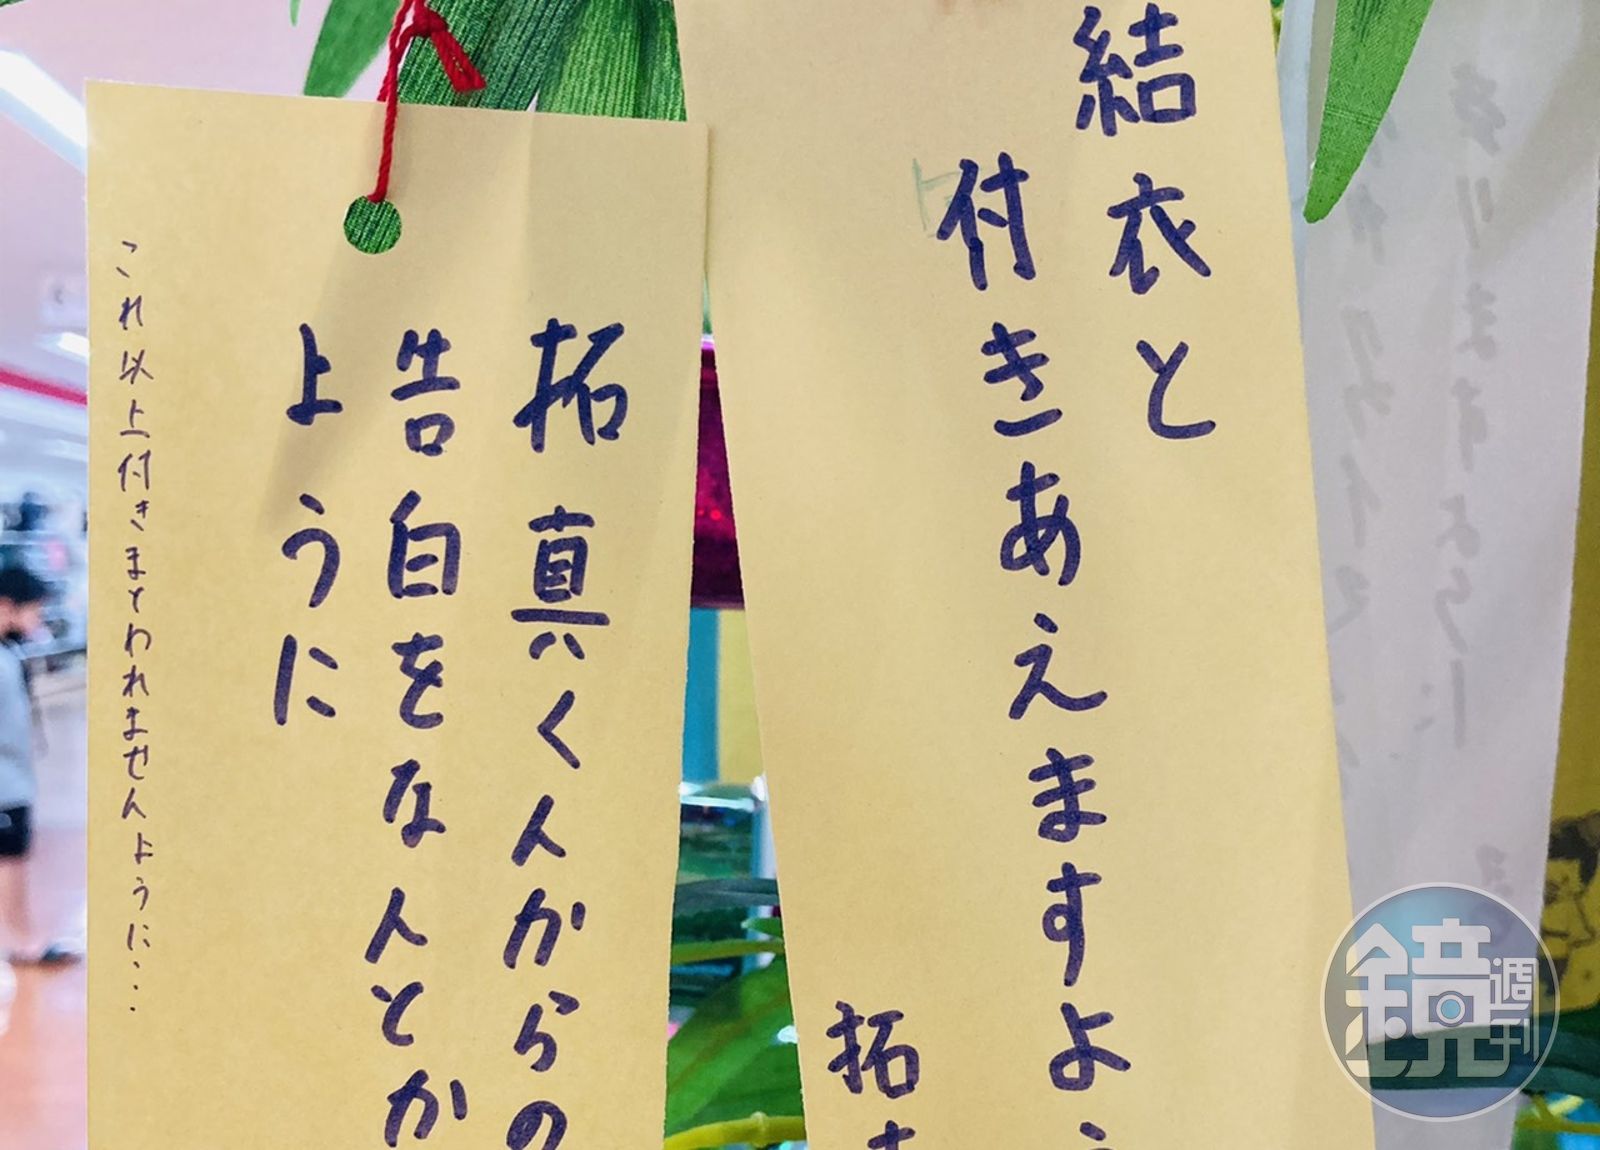 結衣と
付きあえますよう
拓
拓真くんからの
告白をなんとか
ように
これ以上付きまとわれませんように...
鏡週刊